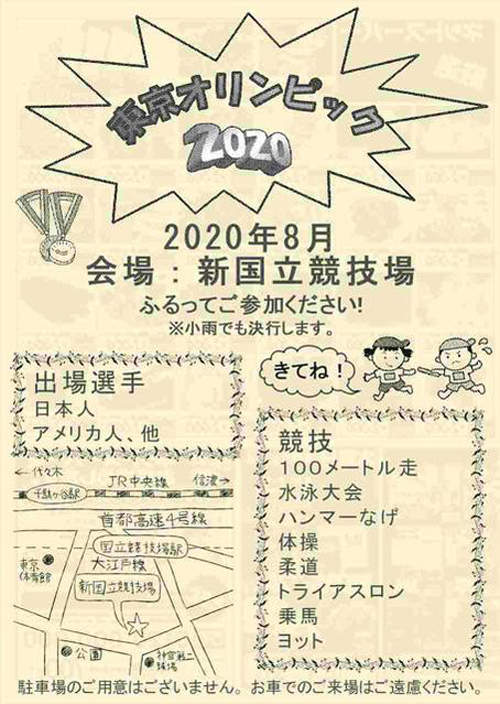 東京オリンピック
2020
2020年8月
会場：新国立競技場
ふるってご参加ください!
※小雨でも決行します。
出場選手
日本人
アメリカ人、他
きてね！
競技
100メートル走
水泳大会
ハンマーなげ
体操
柔道
トライアスロン
乗馬
ヨット
←代々木
JR中央線
信濃→
千駄ヶ谷駅
首都高速4号線
国立競技場駅
大江戸線
新国立競技場
東京
体育館
公園
神宮第二
球場
駐車場のご用意はございません。お車でのご来場はご遠慮ください。